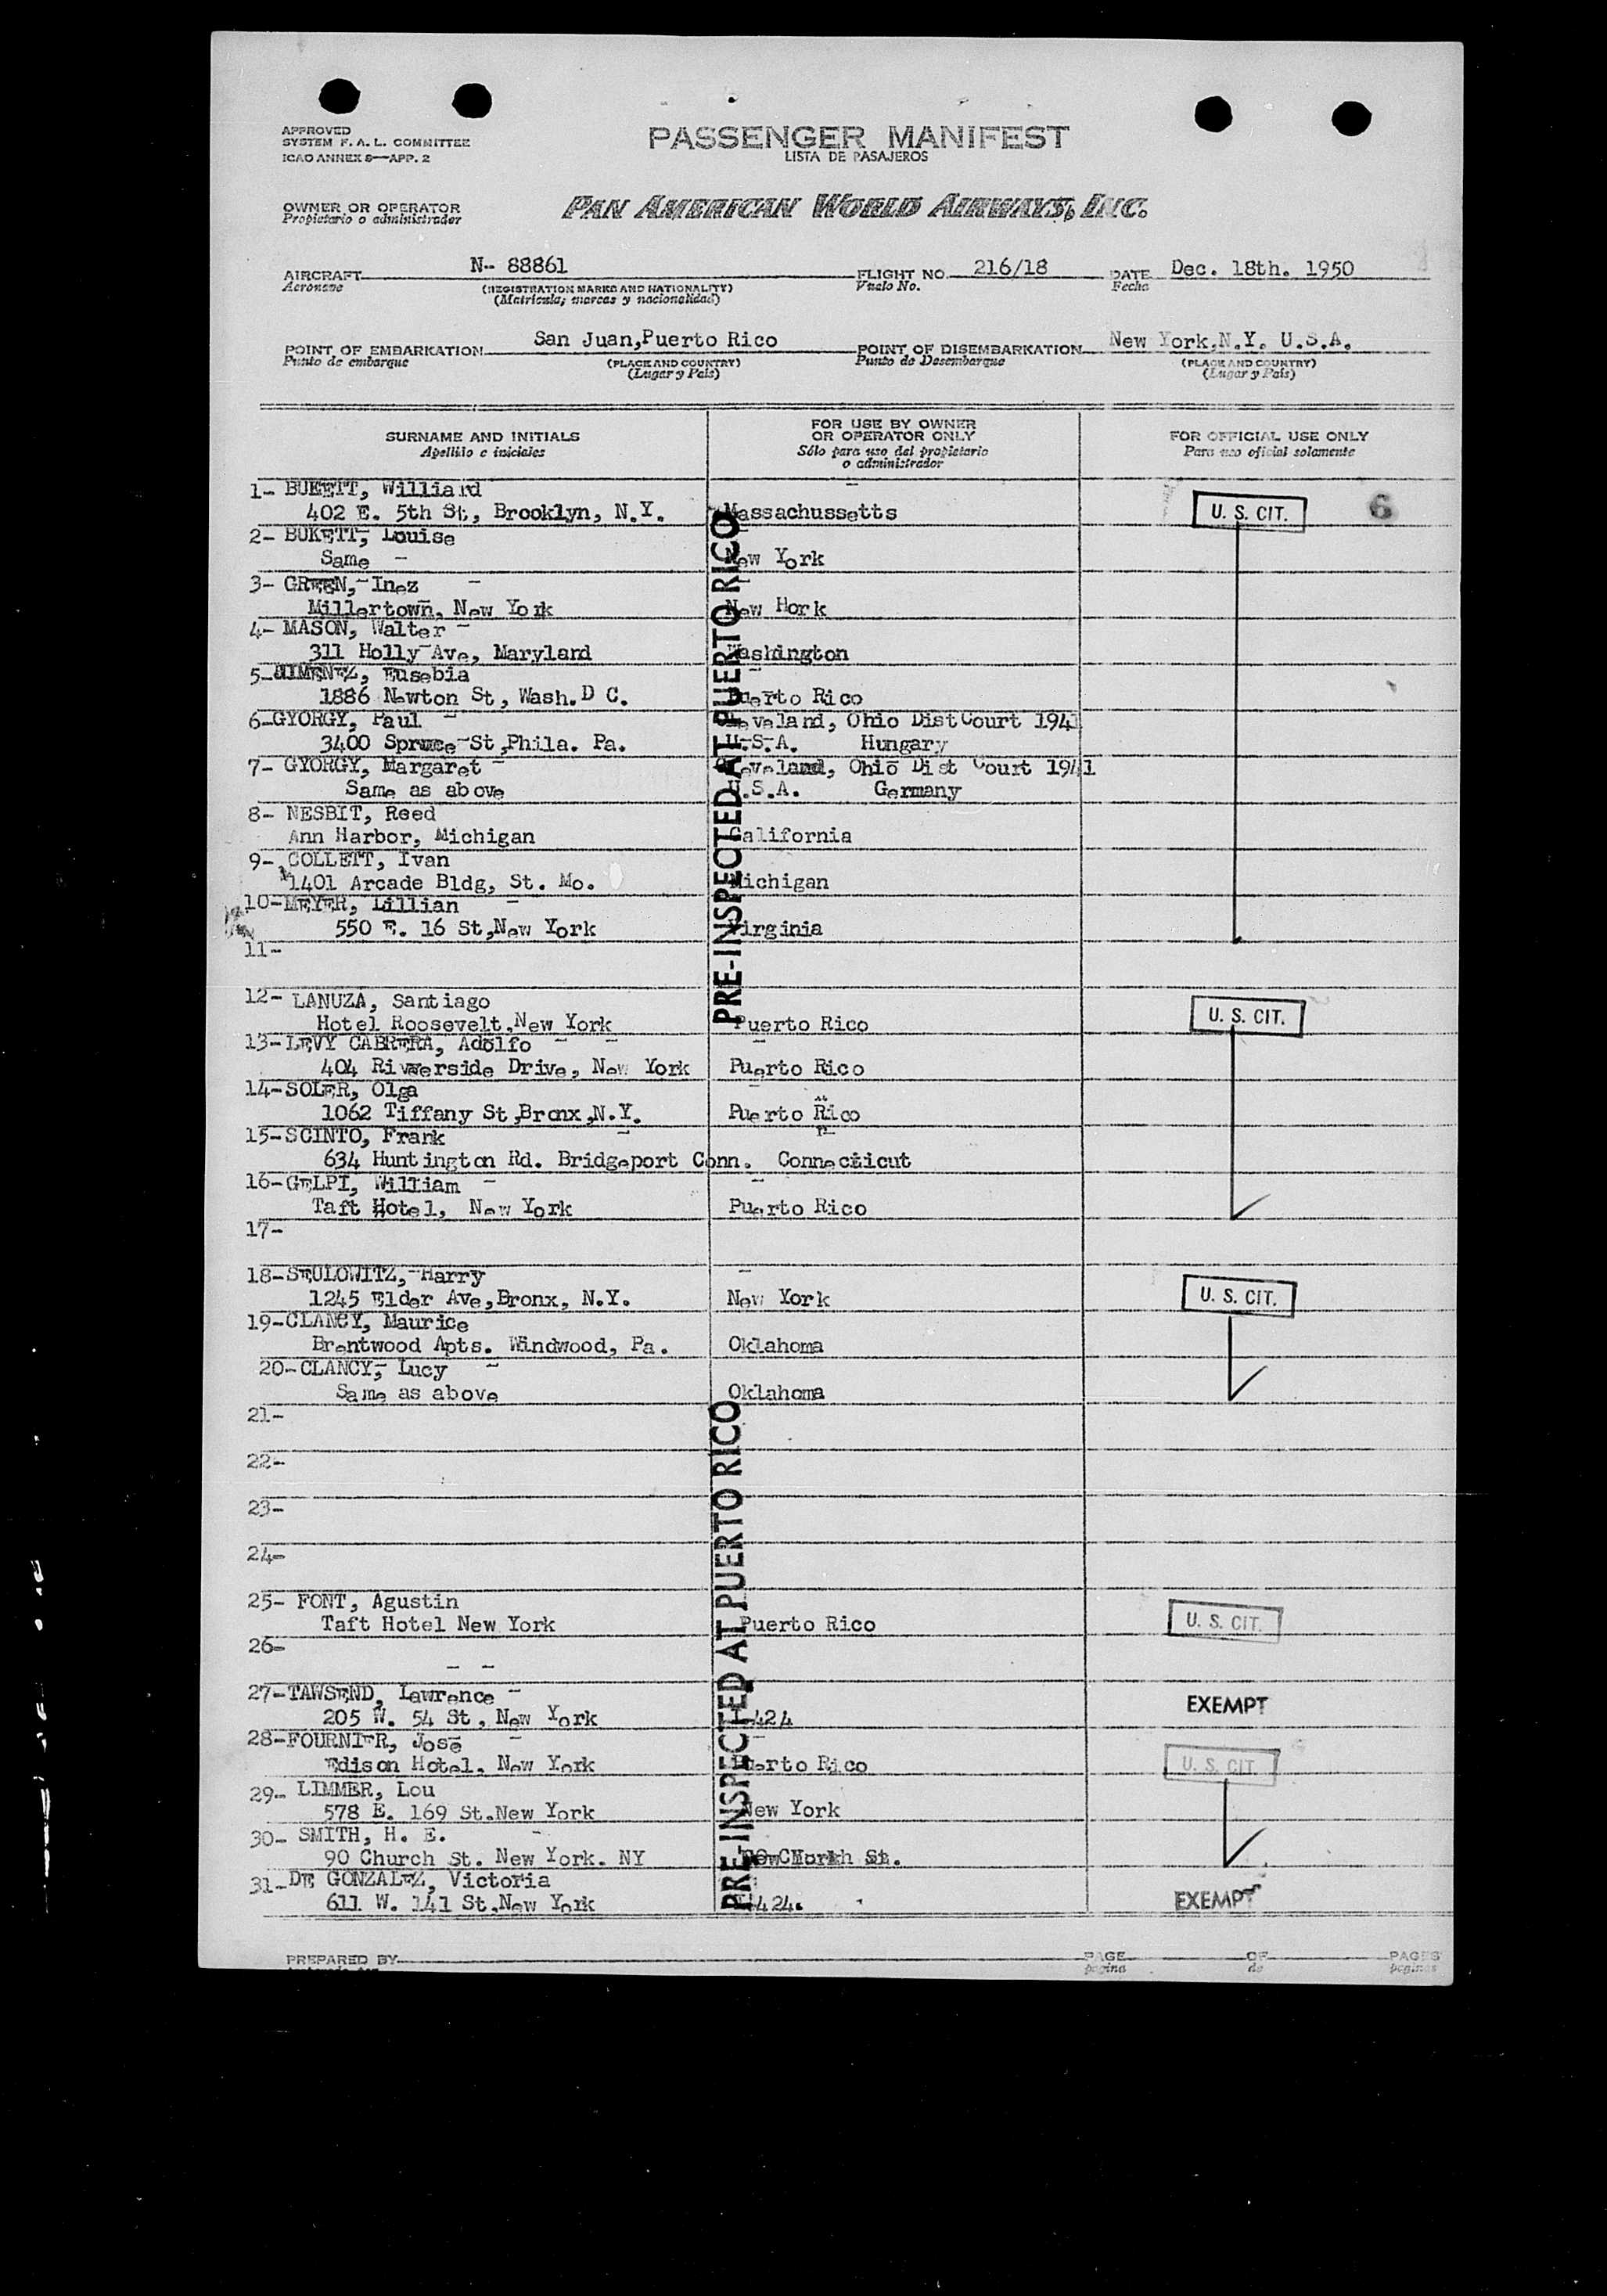 APPROVED
SYSTEM F. A. L. COMMITTEE
ICAO ANNEX 9—APP. 2
PASSENGER MANIFEST
LISTA DE PASAJEROS
OWNER OR OPERATOR
Propietario o administrador
PAN AMERICAN WORLD AIRWAYS, INC.
AIRCRAFT N-- 88861 FLIGHT NO. 216/18 DATE Dec. 18th. 1950
Aeronave (REGISTRATION MARKS AND NATIONALITY) Vuelo No. Fecha
(Matricula; marcas y nacionalidad)
POINT OF EMBARKATION San Juan,Puerto Rico POINT OF DISEMBARKATION New York,N.Y. U.S.A.
Punto de embarque (PLACE AND COUNTRY) Punto de Desembarque (PLACE AND COUNTRY)
(Lugar y Pais) (Lugar y Pais)
SURNAME AND INITIALS
Apellido e iniciales
FOR USE BY OWNER
OR OPERATOR ONLY
Sólo para uso del propietario
o administrador
FOR OFFICIAL USE ONLY
Para uso oficial solamente
1- BUKETT, Williard
402 E. 5th St, Brooklyn, N.Y. Massachussetts U. S. CIT. 6
2- BUKETT, Louise
Same - New York
3- GREEN, Inez
Millertown, New York New Hork
4- MASON, Walter
311 Holly Ave, Maryland Washington
5- JIMENEZ, Eusebia
1886 Newton St, Wash.D C. Puerto Rico
6-GYORGY, Paul Cleveland, Ohio Dist Court 1941
3400 Spruce St,Phila. Pa. U.S.A. Hungary
7- GYORGY, Margaret Cleveland, Ohio Dist Court 1941
Same as above U.S.A. Germany
8- NESBIT, Reed
Ann Harbor, Michigan California
9- COLLETT, Ivan
1401 Arcade Bldg, St. Mo. Michigan
10-MEYER, Lillian
550 E. 16 St,New York Virginia
11-
PRE-INSPECTED AT PUERTO RICO
12- LANUZA, Santiago
Hotel Roosevelt,New York Puerto Rico U. S. CIT.
13-LEVY CABRERA, Adolfo
404 Riverside Drive, New York Puerto Rico
14-SOLER, Olga
1062 Tiffany St,Bronx,N.Y. Puerto Rico
15-SCINTO, Frank
634 Huntington Rd. Bridgeport Conn. Connecticut
16-GELPI, William
Taft Hotel, New York Puerto Rico
17-
18-SEULOWITZ, Harry
1245 Elder Ave,Bronx, N.Y. New York U. S. CIT.
19-CLANCY, Maurice
Brentwood Apts. Windwood, Pa. Oklahoma
20-CLANCY, Lucy
Same as above Oklahoma
21-
22-
23-
24-
25- FONT, Agustin
Taft Hotel New York Puerto Rico U. S. CIT.
26-
27-TAWSEND, Lawrence EXEMPT
205 W. 54 St, New York 424
28-FOURNIER, Jose
Edison Hotel, New York Puerto Rico U. S. CIT.
29- LIMMER, Lou
578 E. 169 St.New York New York
30- SMITH, H. E.
90 Church St. New York. NY
31-DE GONZALEZ, Victoria
611 W. 141 St.New York 424. EXEMPT
PRE-INSPECTED AT PUERTO RICO
PREPARED BY PAGE OF PAGES
pagina de paginas